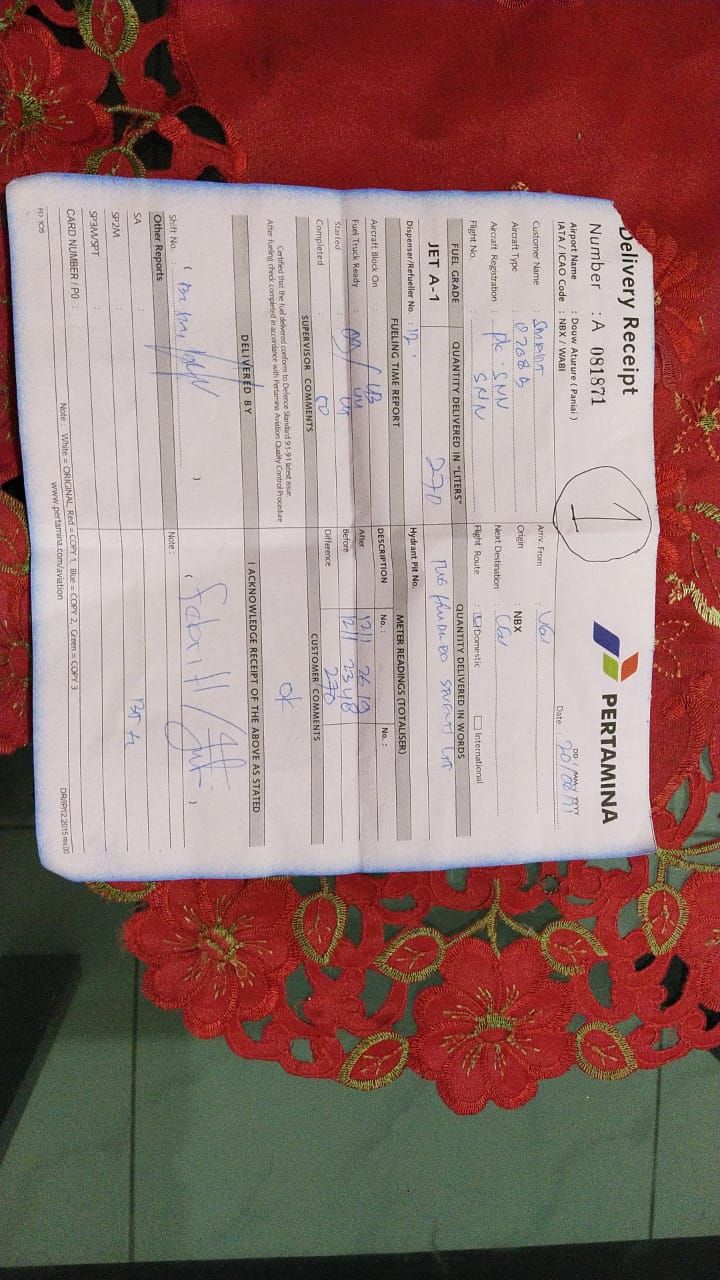 Delivery Receipt
PERTAMINA
Number : A 081871
1
Airport Name : Douw Aturure ( Paniai )
IATA / ICAO Code : NBX / WABI
DD / MM / YYYY
Date :
Customer Name :
Arriv. From :
Aircraft Type :
Origin : NBX
Aircraft Registration : PK-SNN
Next Destination :
Flight No. : SNN
Flight Route : Domestic International
FUEL GRADE
QUANTITY DELIVERED IN "LITERS"
QUANTITY DELIVERED IN WORDS
JET A-1
270
Dispenser/Refueller No. : 12
Hydrant Pit No.
FUELING TIME REPORT
METER READINGS (TOTALISER)
Aircraft Block On :
DESCRIPTION
No. :
No. :
Fuel Truck Ready :
After
1211 2618
Started :
Before
1211 2348
Completed :
Difference
270
SUPERVISOR COMMENTS
CUSTOMER COMMENTS
Certified that the fuel delivered conform to Defence Standard 91-91 latest issue.
After fueling check completed in accordance with Pertamina Aviation Quality Control Procedure
OK
DELIVERED BY
I ACKNOWLEDGE RECEIPT OF THE ABOVE AS STATED
Shift No. :
Note :
Other Reports
SA :
SP2M :
SP3M/SPT :
CARD NUMBER / P0 :
Note : White = ORIGINAL, Red = COPY 1, Blue = COPY 2, Green = COPY 3
www.pertamina.com/aviation